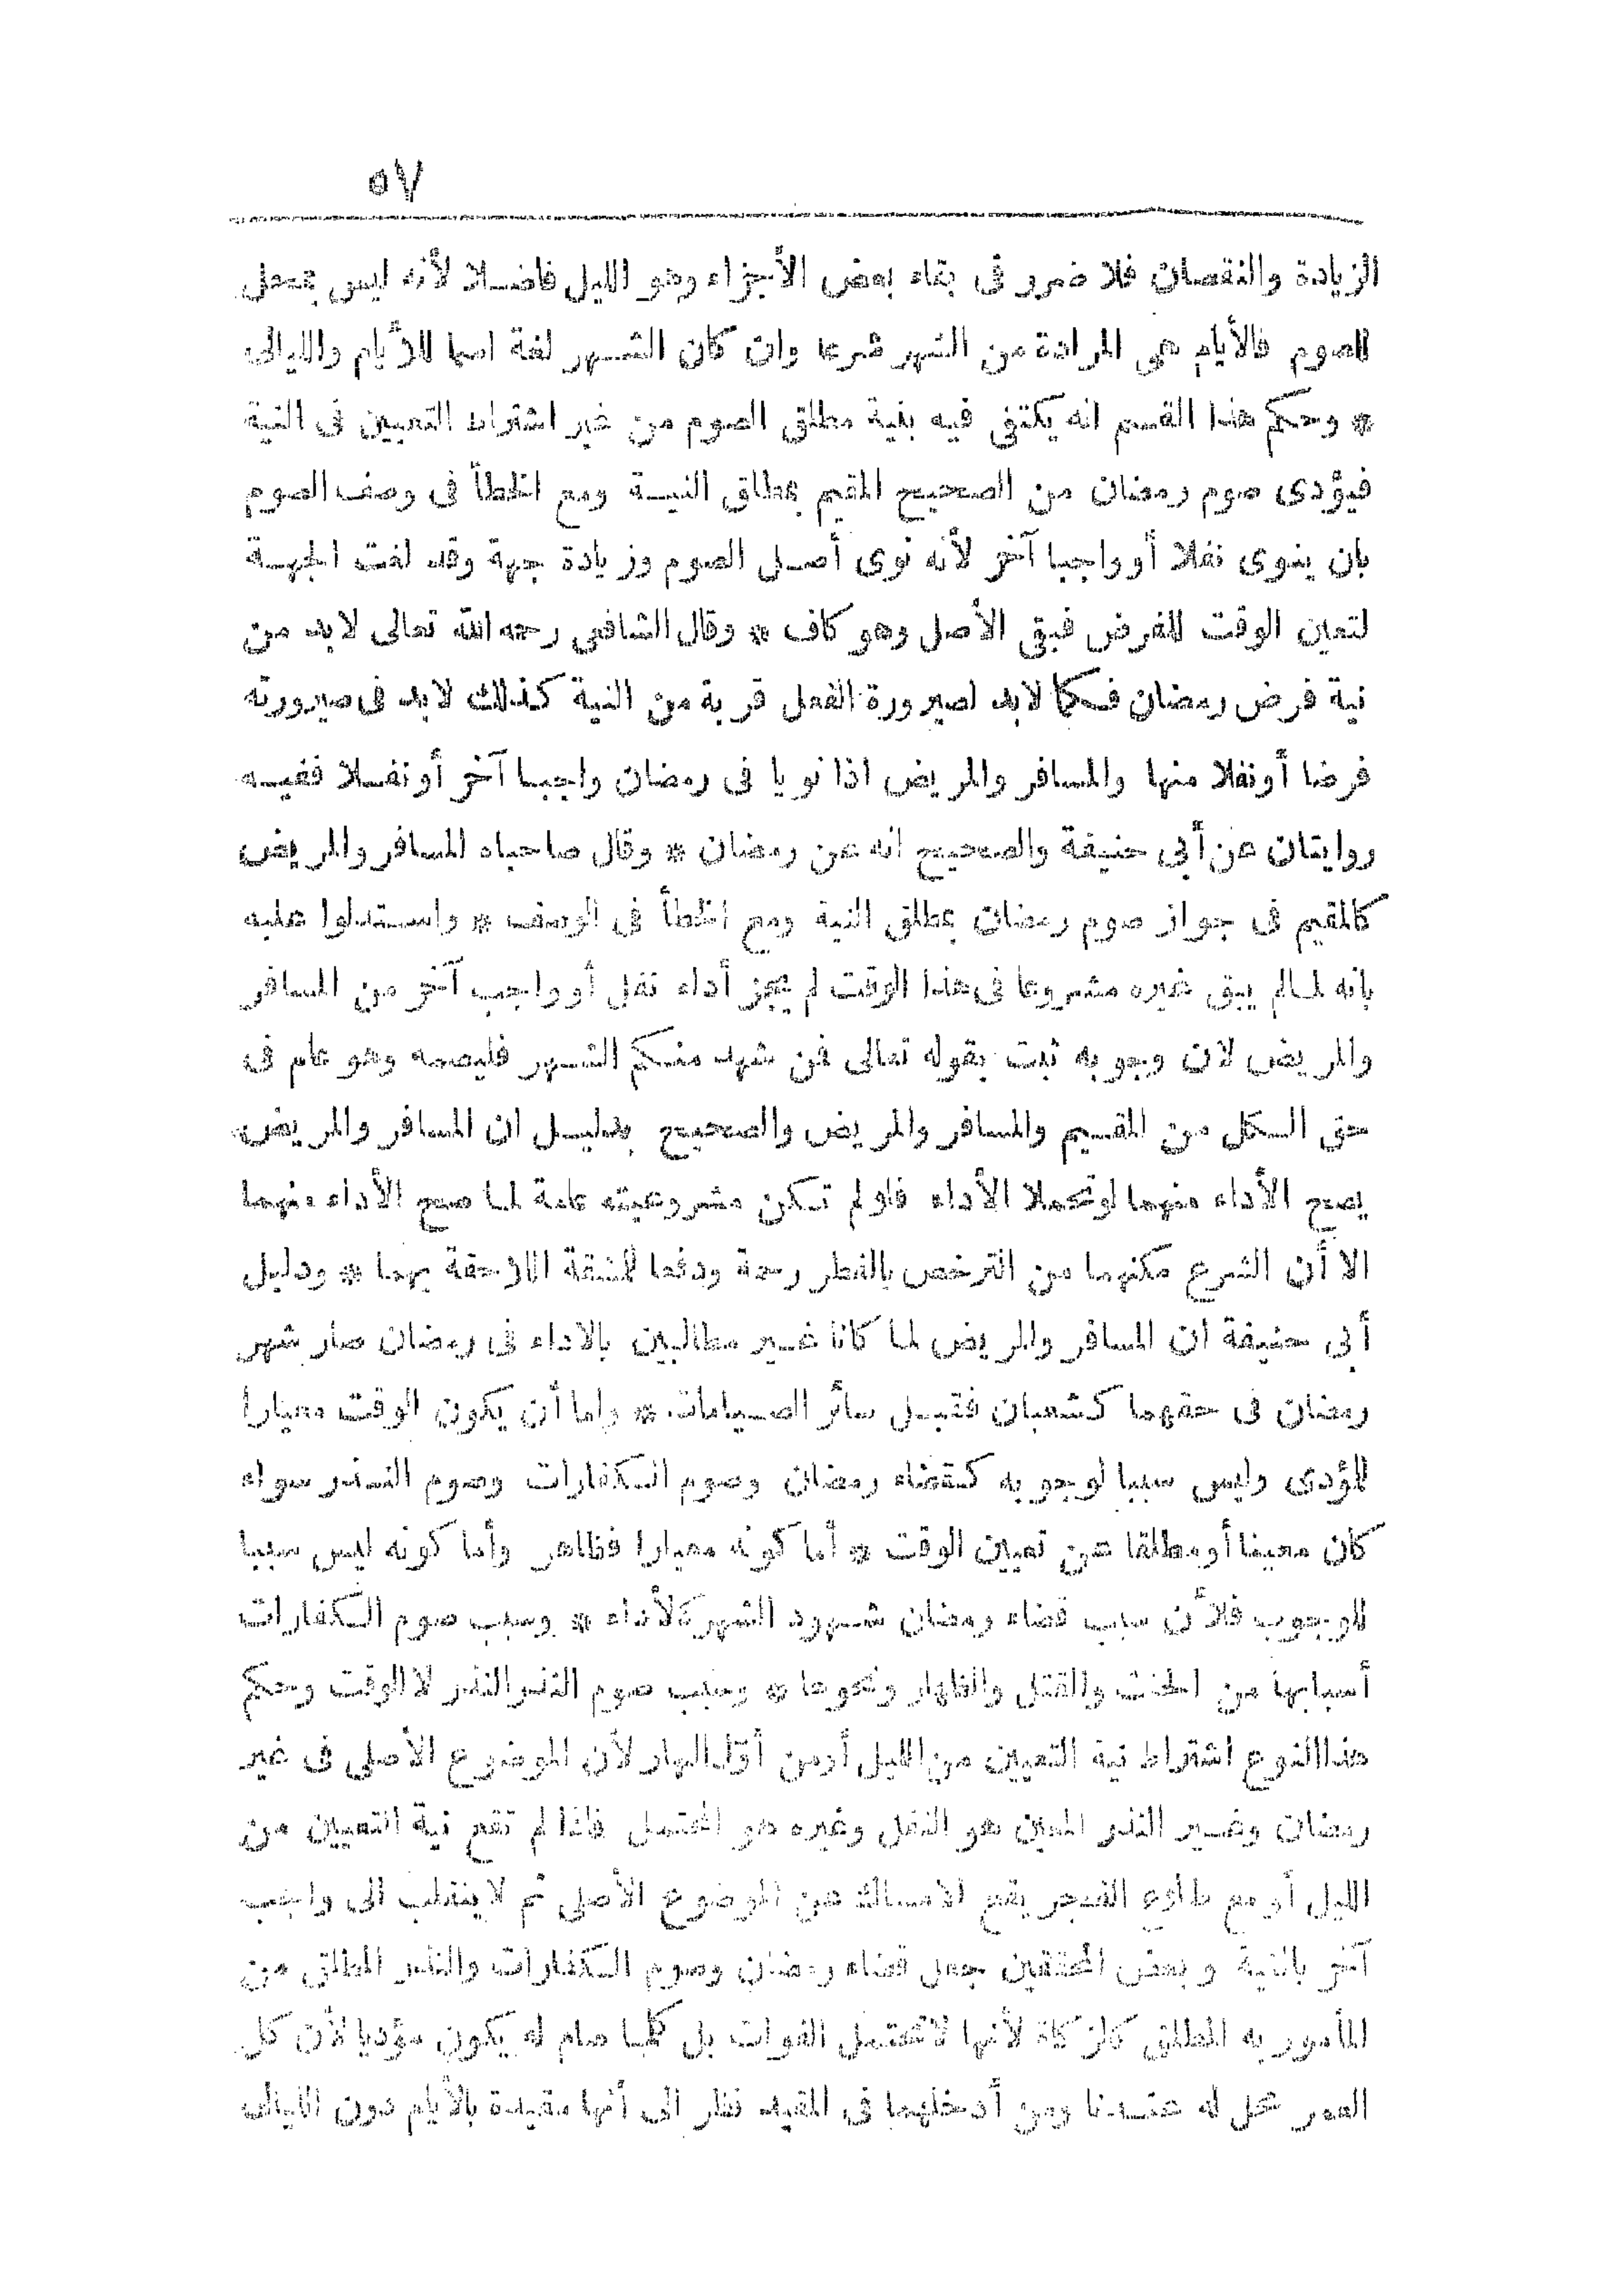 ٥٧
الزيادة والنقصان فلا ضرر فى بقاء بعض الأجزاء وهو الليل فاضلا لأنه ليس بمحل
للصوم فالأيام هى المرادة من الشهر شرعا وان كان الشهر لغة اسما للأيام والليالى
* وحكم هذا القسم انه يكتفى فيه بنية مطلق الصوم من غير اشتراط التعيين فى النية
فيؤدى صوم رمضان من الصحيح المقيم بمطلق النية ومع الخطأ فى وصف الصوم
بان ينوى نفلا أو واجبا آخر لأنه نوى أصل الصوم وزيادة جهة وقد لغت الجهة
لتعين الوقت للفرض فبقى الأصل وهو كاف * وقال الشافعى رحمه الله تعالى لا بد من
نية فرض رمضان فكما لابد لصيرورة الفعل قربة من النية كذلك لابد فى صيرورته
فرضا أو نفلا منها والمسافر والمريض اذا نويا فى رمضان واجبا آخر أو نفلا ففيه
روايتان عن أبى حنيفة والصحيح انه عن رمضان * وقال صاحباه المسافر والمريض
كالمقيم فى جواز صوم رمضان بمطلق النية ومع الخطأ فى الوصف * واستدلوا عليه
بانه لما لم يبق غيره مشروعا فى هذا الوقت لم يجز أداء نفل أو واجب آخر من المسافر
والمريض لان وجوبه ثبت بقوله تعالى فمن شهد منكم الشهر فليصمه وهو عام فى
حق الكل من المقيم والمسافر والمريض والصحيح بدليل ان المسافر والمريض
يصح الأداء منهما لو تحملا الأداء فلو لم تكن مشروعيته عامة لما صح الأداء منهما
الا أن الشرع مكنهما من الترخص بالفطر رحمة ودفعا للمشقة اللاحقة بهما * ودليل
أبى حنيفة ان المسافر والمريض لما كانا غير مطالبين بالاداء فى رمضان صار شهر
رمضان فى حقهما كشعبان فتقبل سائر الصيامات * واما أن يكون الوقت معيارا
للمؤدى وليس سببا لوجوبه كقضاء رمضان وصوم الكفارات وصوم النذر سواء
كان معينا أو مطلقا عن تعيين الوقت * أما كونه معيارا فظاهر وأما كونه ليس سببا
للوجوب فلأن سبب قضاء رمضان شهود الشهر كالأداء * وسبب صوم الكفارات
أسبابها من الحنث والقتل والظهار ونحوها * وسبب صوم النذر النذر لا الوقت وحكم
هذا النوع اشتراط نية التعيين من الليل أو من أول النهار لأن الموضوع الأصلى فى غير
رمضان وغير النذر المعين هو النفل وغيره هو المحتمل فاذا لم تقع نية التعيين من
الليل أو مع طلوع الفجر يقع الامساك عن الموضوع الأصلى ثم لا ينقلب الى واجب
آخر بالنية وبعض المحققين جعل قضاء رمضان وصوم الكفارات والنذر المطلق من
المأمور به المطلق كالزكاة لأنها لا تحتمل الفوات بل كلما صام له يكون مؤديا لأن كل
العمر محل له عندنا ومن أدخلهما فى المقيد نظر الى أنها مقيدة بالأيام دون الليالى